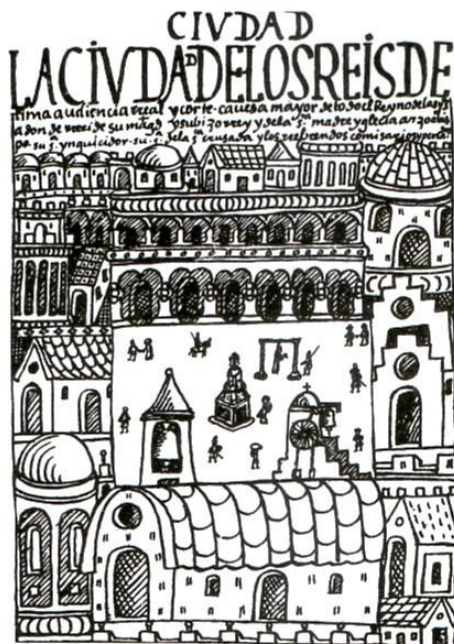 CIVDAD
LA CIVDAD DE LOS REIS DE
lima audiencia rreal y corte - cauesa mayor de todo el Reyno de las yꝫ
adonde rrecide su magd y su bizorrey y de la sta madre yglecia arzobis
po su sa ynquicidor - su sa de la sta crusada y los rreberendos comisarios y perla